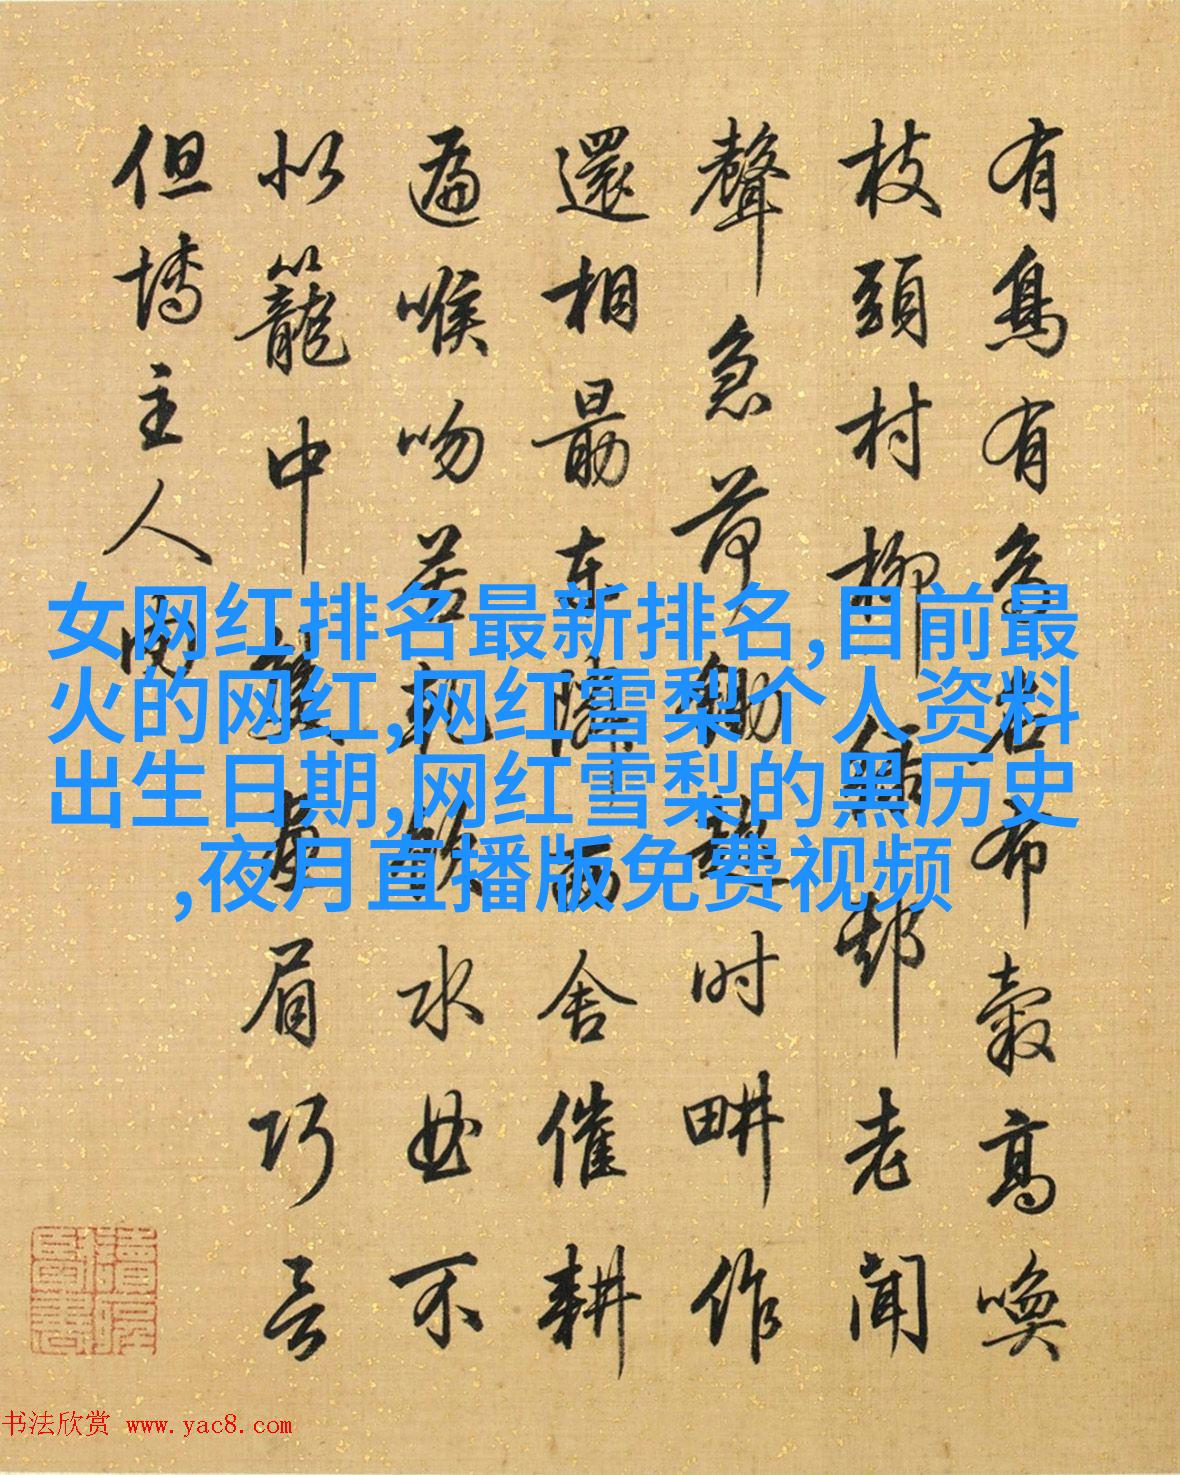 有鳥有鳥名布穀高喚
枝頭村柳邨老聞
聲急荷鋤趁時畊作
還相勗東鄰西舍催耕
遍喉吻若乾飲水曲不
似籠中畫眉巧言
但博主人
女网红排名最新排名,目前最
火的网红,网红雪梨个人资料
出生日期,网红雪梨的黑历史
,夜月直播版免费视频
书法欣赏 www.yac8.com